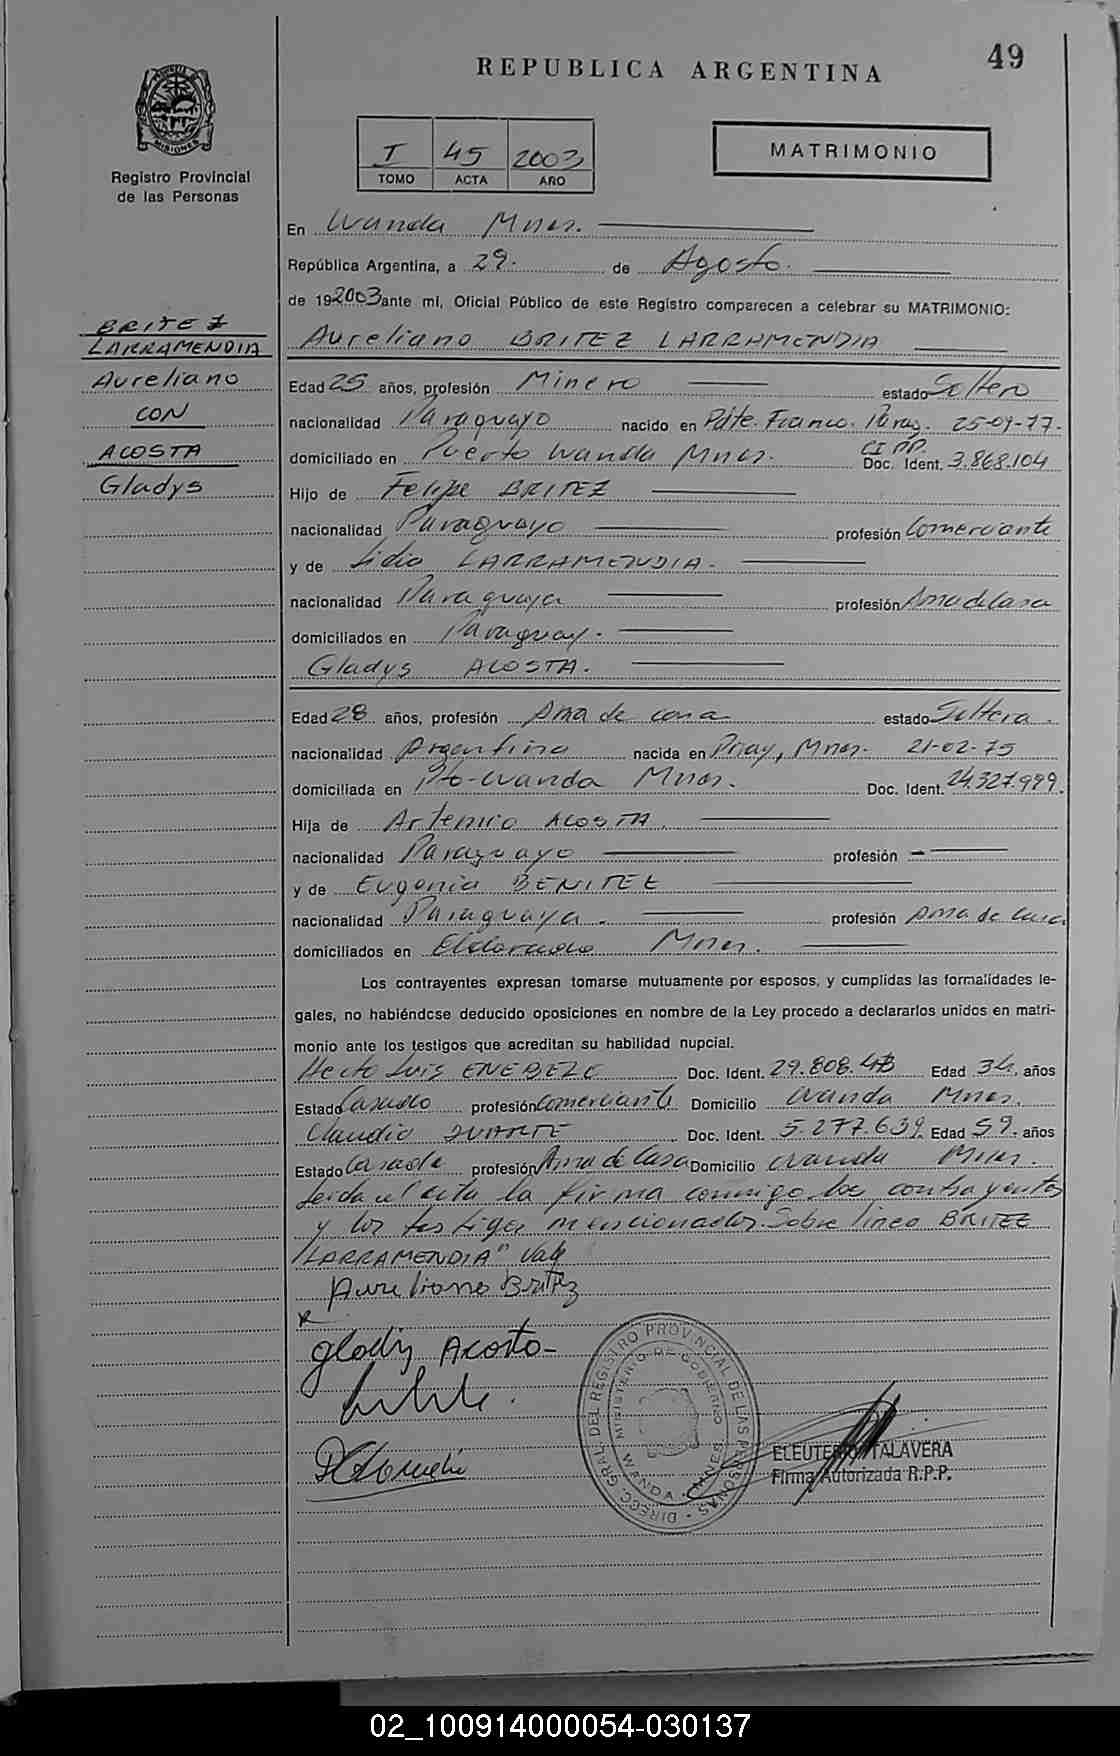 49
REPUBLICA ARGENTINA
MISIONES
Registro Provincial
de las Personas
I 45 2003
TOMO ACTA AÑO
MATRIMONIO
En Wanda Mnes.
República Argentina, a 29. de Agosto.
de 192003 ante mí, Oficial Público de este Registro comparecen a celebrar su MATRIMONIO:
BRITEZ
LARRAMENDIA
Aureliano
CON
ACOSTA
Gladys
Aureliano BRITEZ LARRAMENDIA
Edad 25 años, profesión Minero estado Soltero
nacionalidad Paraguayo nacido en Pdte. Franco. Parag. 25-09-77.
domiciliado en Puerto Wanda Mnes. CI PP. Doc. Ident. 3.868.104
Hijo de Felipe BRITEZ
nacionalidad Paraguayo profesión Comerciante
y de Lidia LARRAMENDIA.
nacionalidad Paraguaya profesión Ama de casa
domiciliados en Paraguay.
Gladys ACOSTA.
Edad 28 años, profesión Ama de casa estado Soltera.
nacionalidad Argentina nacida en Mnes. 21-02-75
domiciliada en Pto-Wanda Mnes. Doc. Ident. 24.327.999.
Hija de Artemio ACOSTA.
nacionalidad Paraguayo profesión -
y de Eugenia BENITEZ
nacionalidad Paraguaya. profesión Ama de casa
domiciliados en Eldorado Mnes.
Los contrayentes expresan tomarse mutuamente por esposos, y cumplidas las formalidades le-
gales, no habiéndose deducido oposiciones en nombre de la Ley procedo a declararlos unidos en matri-
monio ante los testigos que acreditan su habilidad nupcial.
Hecto Luis Doc. Ident. 29.808. Edad 34. años
Estado Casado profesión Comerciante Domicilio Wanda Mnes.
Claudia DUARTE Doc. Ident. 5.277.639. Edad 59. años
Estado Casada profesión Ama de Casa Domicilio Wanda Mnes.
Leida el acta la firma conmigo los contrayentes
y los testigos mencionados. Sobre linea BRITEZ
"LARRAMENDIA" Vale
Aureliano Britez
x
glady Acosta-
DIRECC. GRAL. DEL REGISTRO PROVINCIAL DE LAS PERSONAS
MINISTERIO DE GOBIERNO
WANDA - MNES
ELEUTERIO TALAVERA
Firma Autorizada R.P.P.
02_100914000054-030137